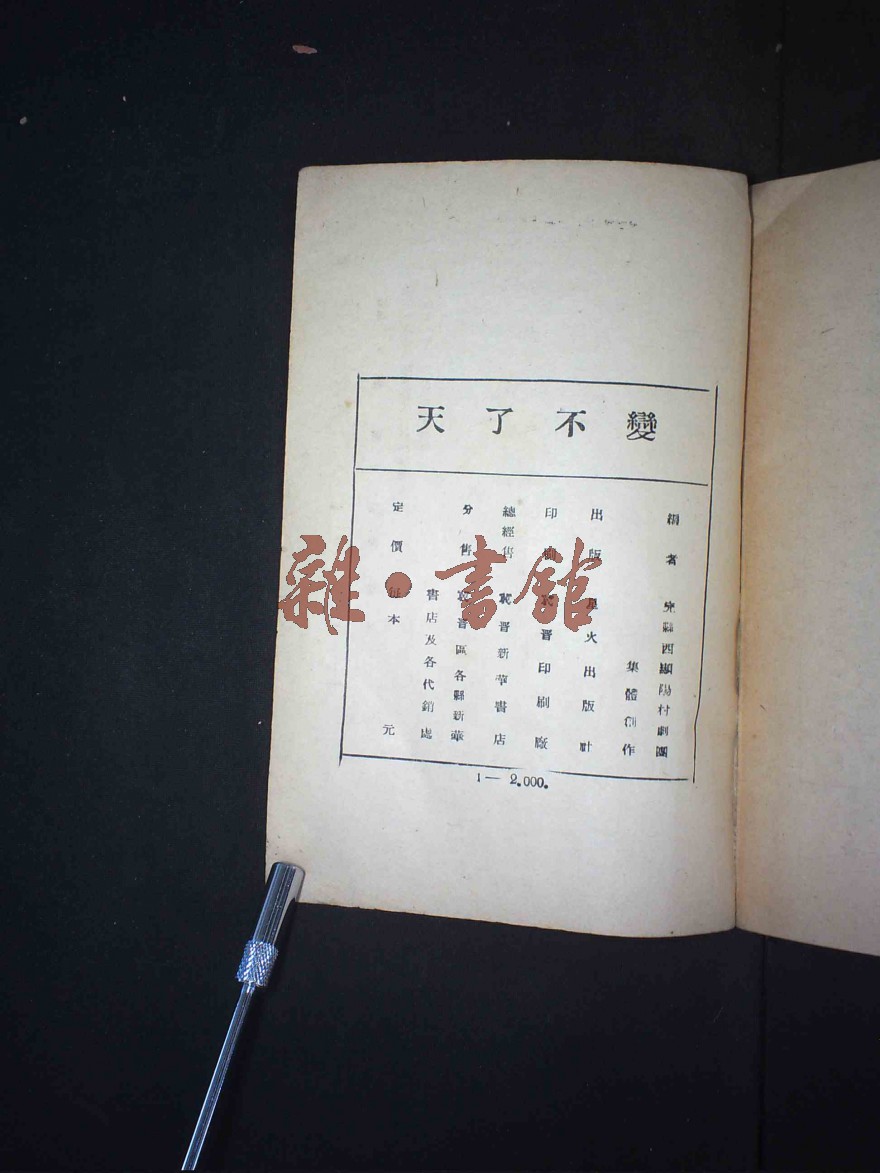 變不了天
編者 完縣西顯陽村劇團
集體創作
出版 星火出版社
印刷 冀晋印刷廠
總經售 冀晋新華書店
分售 冀晋區各縣新華
書店及各代銷處
定價 每本 元
1—2.000.
雜·書館